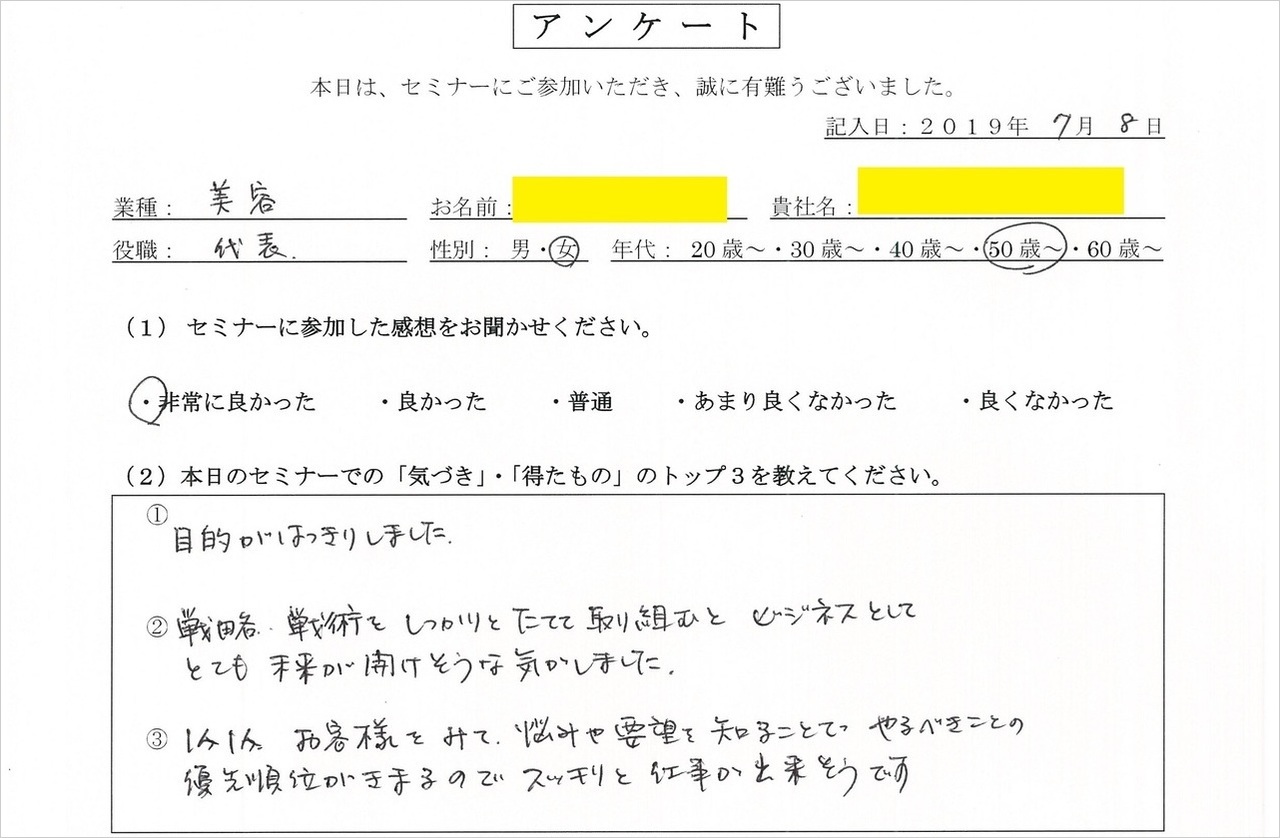 アンケート
本日は、セミナーにご参加いただき、誠に有難うございました。
記入日：２０１９年 7月 8日
業種： 美容 お名前： 貴社名：
役職： 代表. 性別： 男・女 年代： 20歳～・30歳～・40歳～・50歳～・60歳～
（１） セミナーに参加した感想をお聞かせください。
・非常に良かった ・良かった ・普通 ・あまり良くなかった ・良くなかった
（２）本日のセミナーでの「気づき」・「得たもの」のトップ３を教えてください。
① 目的がはっきりしました.
② 戦略. 戦術を しっかりと たてて 取り組むと ビジネスとして
とても 未来が 開けそうな気がしました.
③ 1人1人 お客様を みて. 悩みや要望を 知ることで やるべきことの
優先順位がきまるので スッキリと 仕事が 出来そうです